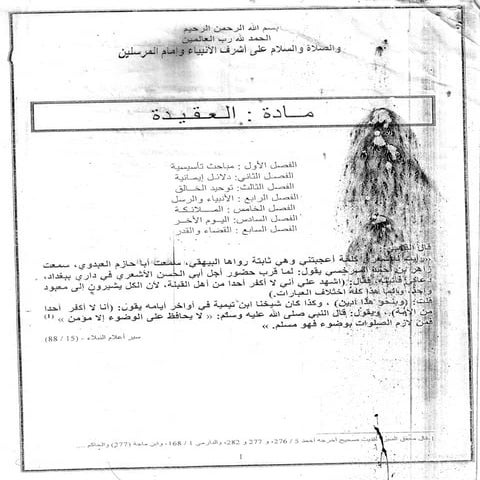 بسم الله الرحمن الرحيم
الحمد لله رب العالمين
والصلاة والسلام على أشرف الأنبياء وإمام المرسلين
مادة : العقيدة
الفصل الأول : مباحث تأسيسية
الفصل الثاني: دلائل إيمانية
الفصل الثالث: توحيد الخالق
الفصل الرابع : الأنبياء والرسل
الفصل الخامس : الملائكة
الفصل السادس: اليوم الآخر
الفصل السابع : القضاء والقدر
قال الذهبي
كلمة أعجبتني وهي ثابتة رواها البيهقي، سمعت أبا حازم العبدوي، سمعت
زاهر بن أحمد السرخسي يقول: لما قرب حضور أجل أبي الحسن الأشعري في داري ببغداد،
فأتيته، فقال: (اشهد على أني لا أكفر أحدا من أهل القبلة، لأن الكل يشيرون إلى معبود
واحد، وإنما هذا كله اختلاف العبارات.)
قلت: (وبنحو هذا أدين) ، وكذا كان شيخنا ابن تيمية في أواخر أيامه يقول: (أنا لا أكفر أحدا
من الأمة) ، ويقول: قال النبي صلى الله عليه وسلم: « لا يحافظ على الوضوء إلا مؤمن » (1)
فمن لازم الصلوات بوضوء فهو مسلم. »
سير أعلام النبلاء - (15 / 88)
صحيح أخرجه أحمد 5 / 276، و 277 و 282، والدارمي 1 / 168، وابن ماجة (277) والحاكم ...
1